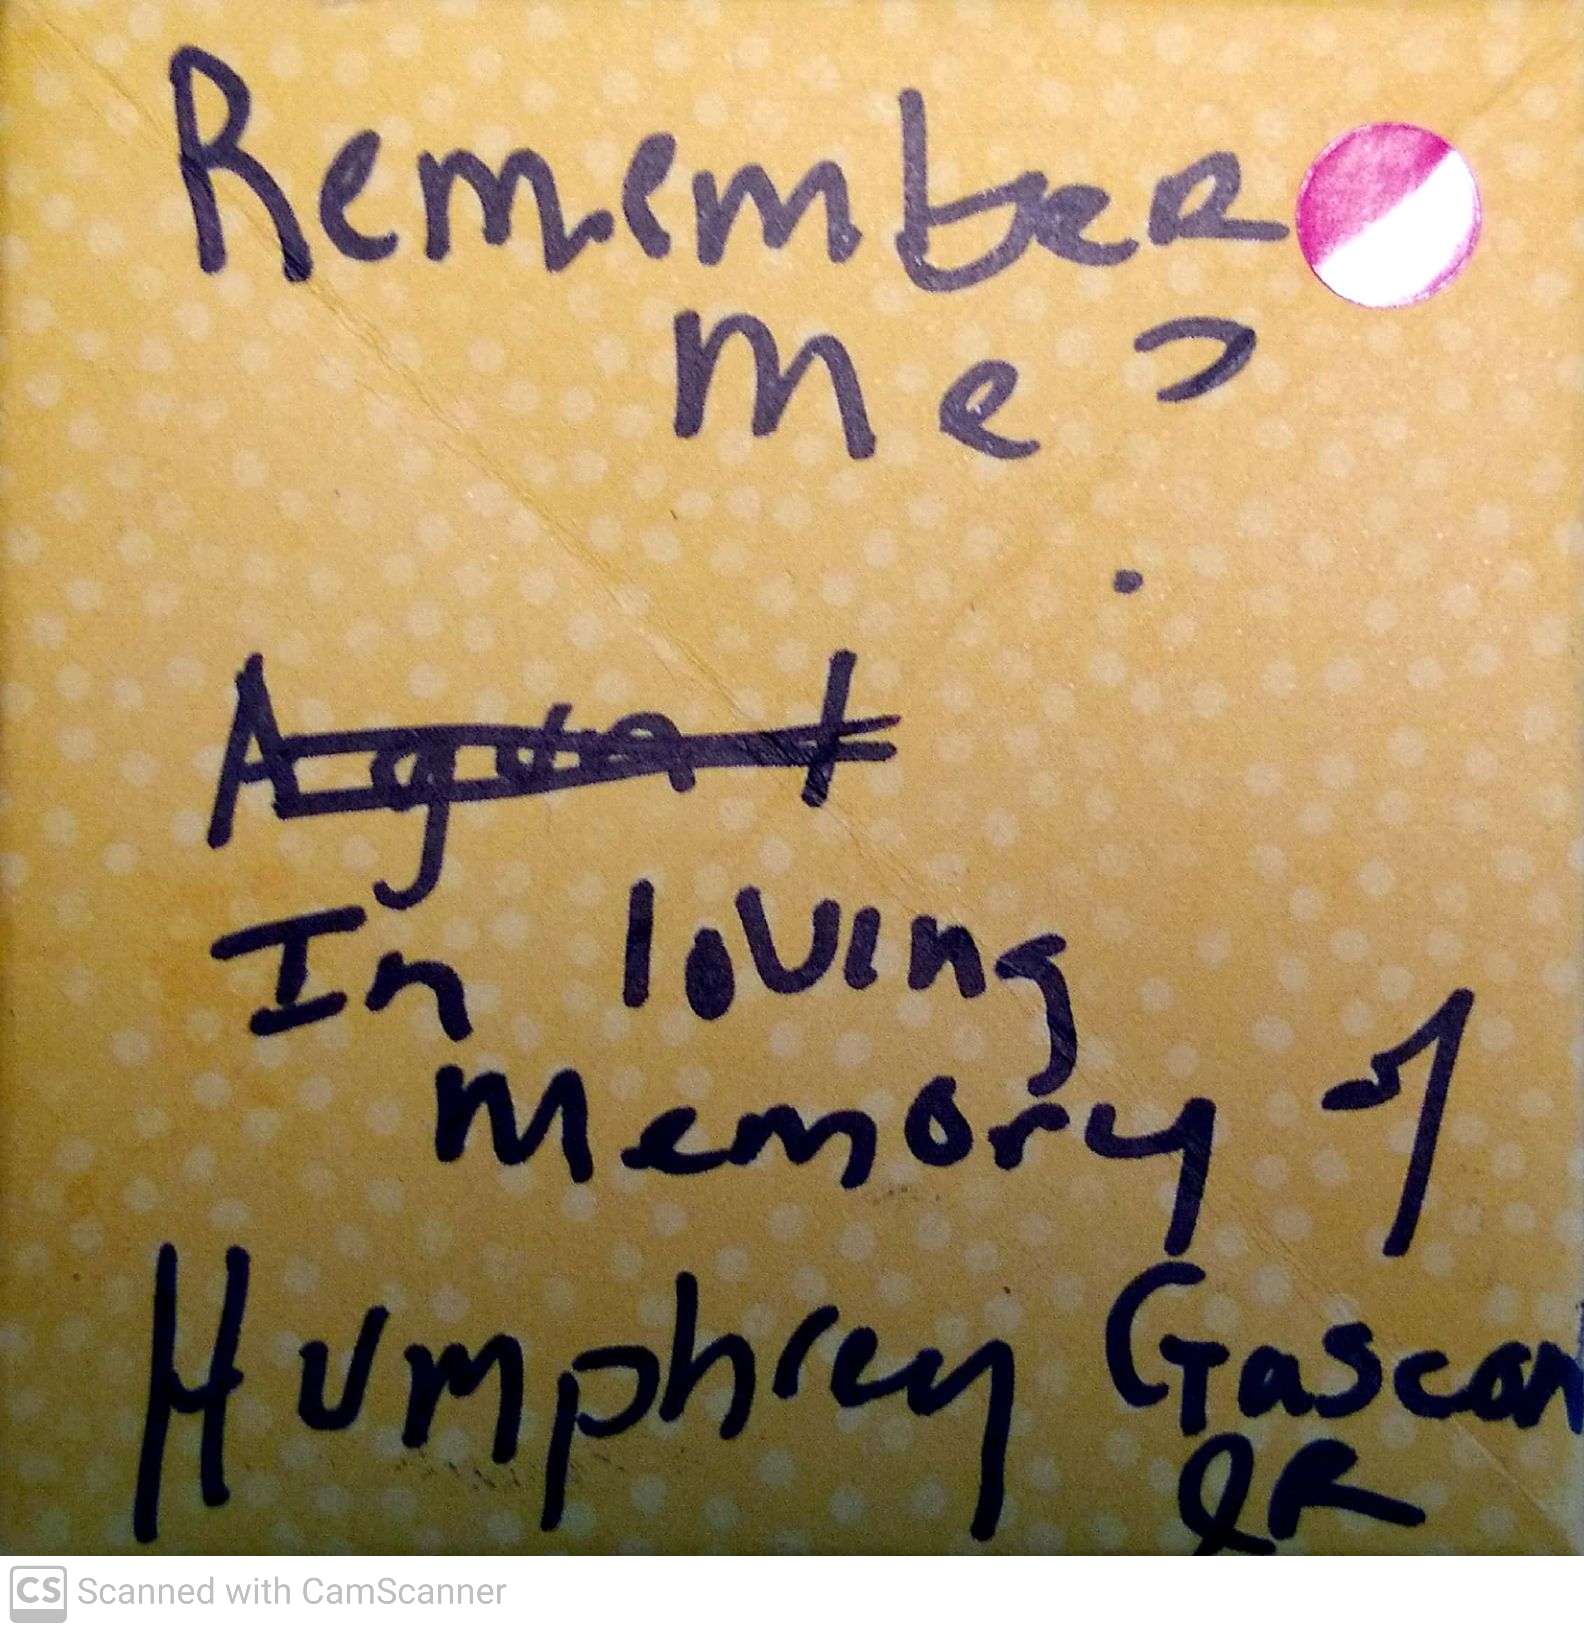 Remember
Me?
In loving
Memory of
Humphrey Gascon
JR
CS Scanned with CamScanner